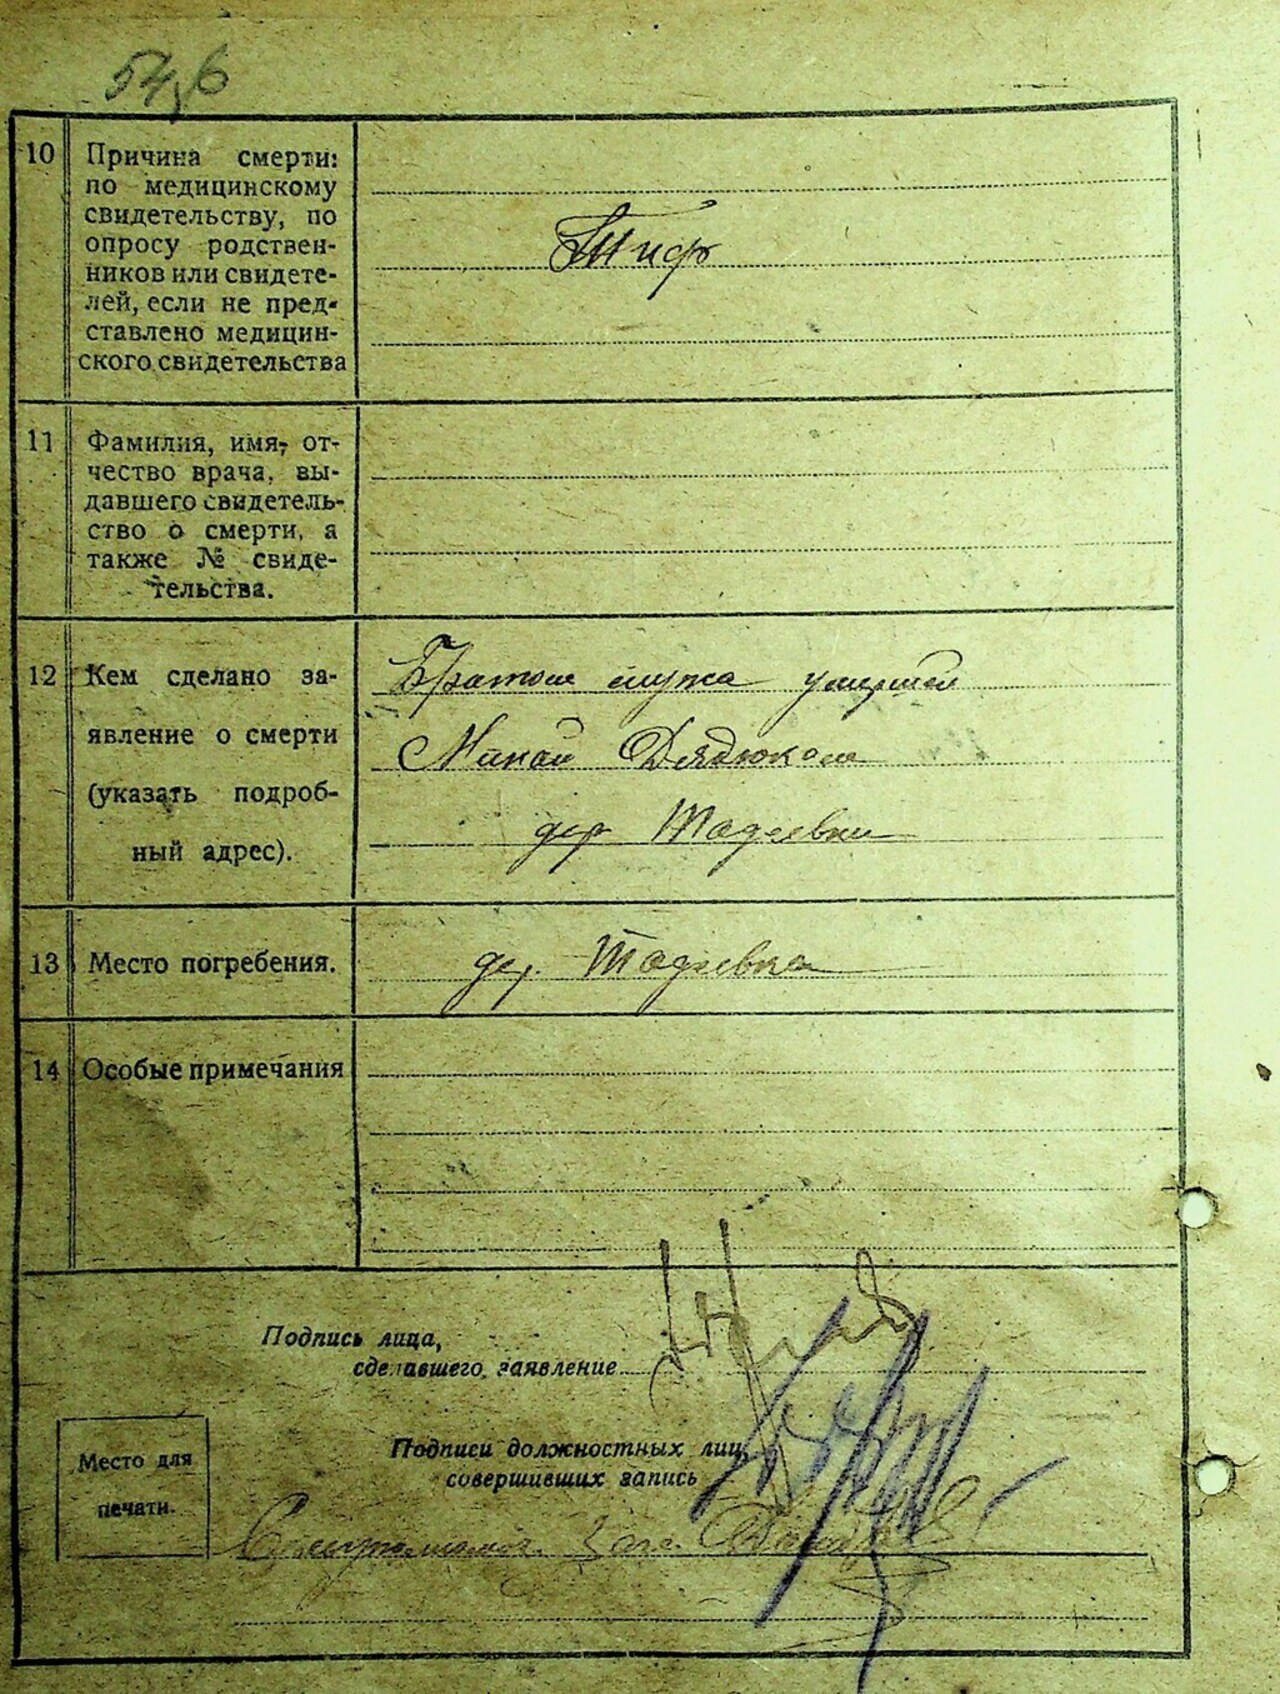 10
Причина смерти:
по медицинскому
свидетельству, по
опросу родствен-
ников или свидете-
лей, если не пред-
ставлено медицин-
ского свидетельства
Тиф
11
Фамилия, имя, от-
чество врача, вы-
давшего свидетель-
ство о смерти, а
также № свиде-
тельства.
12
Кем сделано за-
явление о смерти
(указать подроб-
ный адрес).
Братом мужа умершей
Дядюком
дер Тадеевки
13
Место погребения.
дер. Тадеевка
14
Особые примечания
Подпись лица,
сделавшего заявление
Подписи должностных лиц,
совершивших запись
Место для
печати.